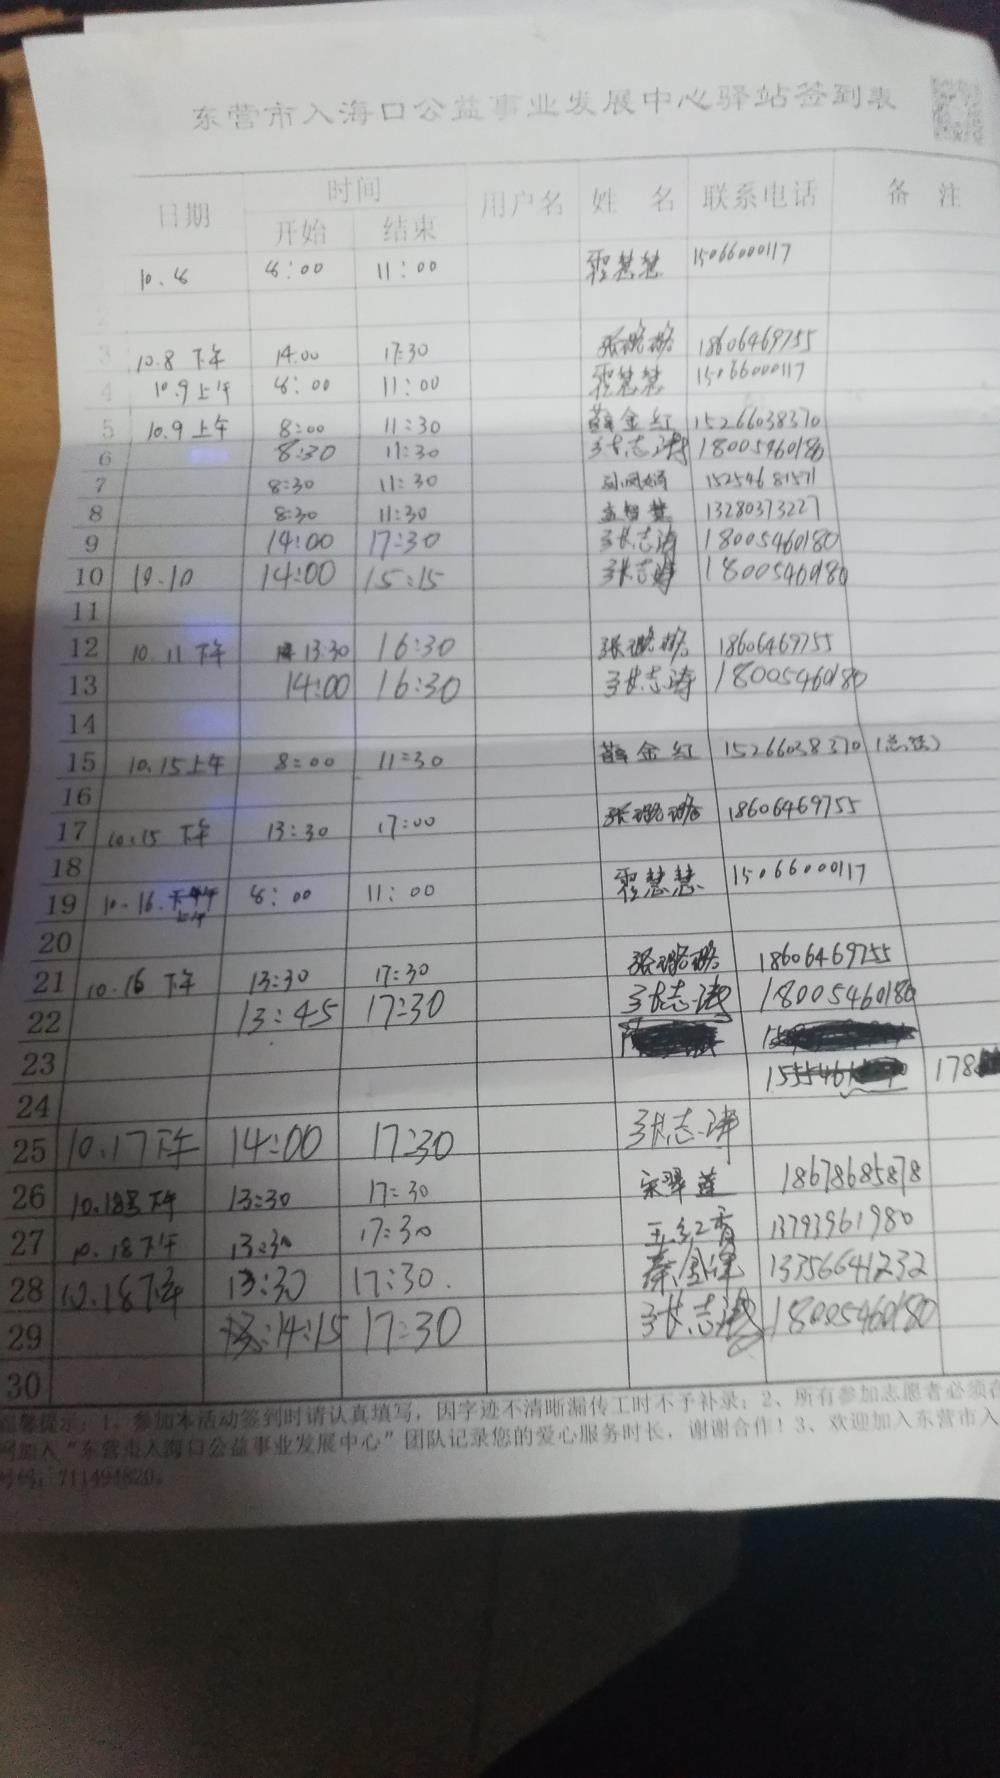 东营市入海口公益事业发展中心驿站签到表
日期 时间 用户名 姓 名 联系电话 备 注
开始 结束
10.8 8:00 11:00 翟慧慧 15066000117
3 10.8 下午 14:00 17:30 张璐璐 18606469755
4 10.9上午 8:00 11:00 翟慧慧 15066000117
5 10.9上午 8:00 11:30 薛金红 15266038370
6 8:30 11:30 张志涛 18005460180
7 8:30 11:30 15254681571
8 8:30 11:30 13280373227
9 14:00 17:30 张志涛 18005460180
10 10.10 14:00 15:15 张志涛 18005460180
11
12 10.11下午 13:30 16:30 张璐璐 18606469755
13 14:00 16:30 张志涛 18005460180
14
15 10.15上午 8:00 11:30 薛金红 15266038370
16
17 10.15 下午 13:30 17:00 张璐璐 18606469755
18
19 10.16. 上午 8:00 11:00 翟慧慧 15066000117
20
21 10.16 下午 13:30 17:30 张璐璐 18606469755
22 13:45 17:30 张志涛 18005460180
23
178
24
25 10.17下午 14:00 17:30 张志涛
26 10.18号下午 13:30 17:30 宋翠莲 18678685878
27 10.18下午 13:30 17:30 王红香 13793961980
28 10.18下午 13:30 17:30. 13356641232
29 14:15 17:30 张志涛 18005460180
30
温馨提示：1、参加本活动签到时请认真填写，因字迹不清晰漏传工时不予补录；2、所有参加志愿者必须在
网加入“东营市入海口公益事业发展中心”团队记录您的爱心服务时长，谢谢合作！3、欢迎加入东营市入
号码：711494820。